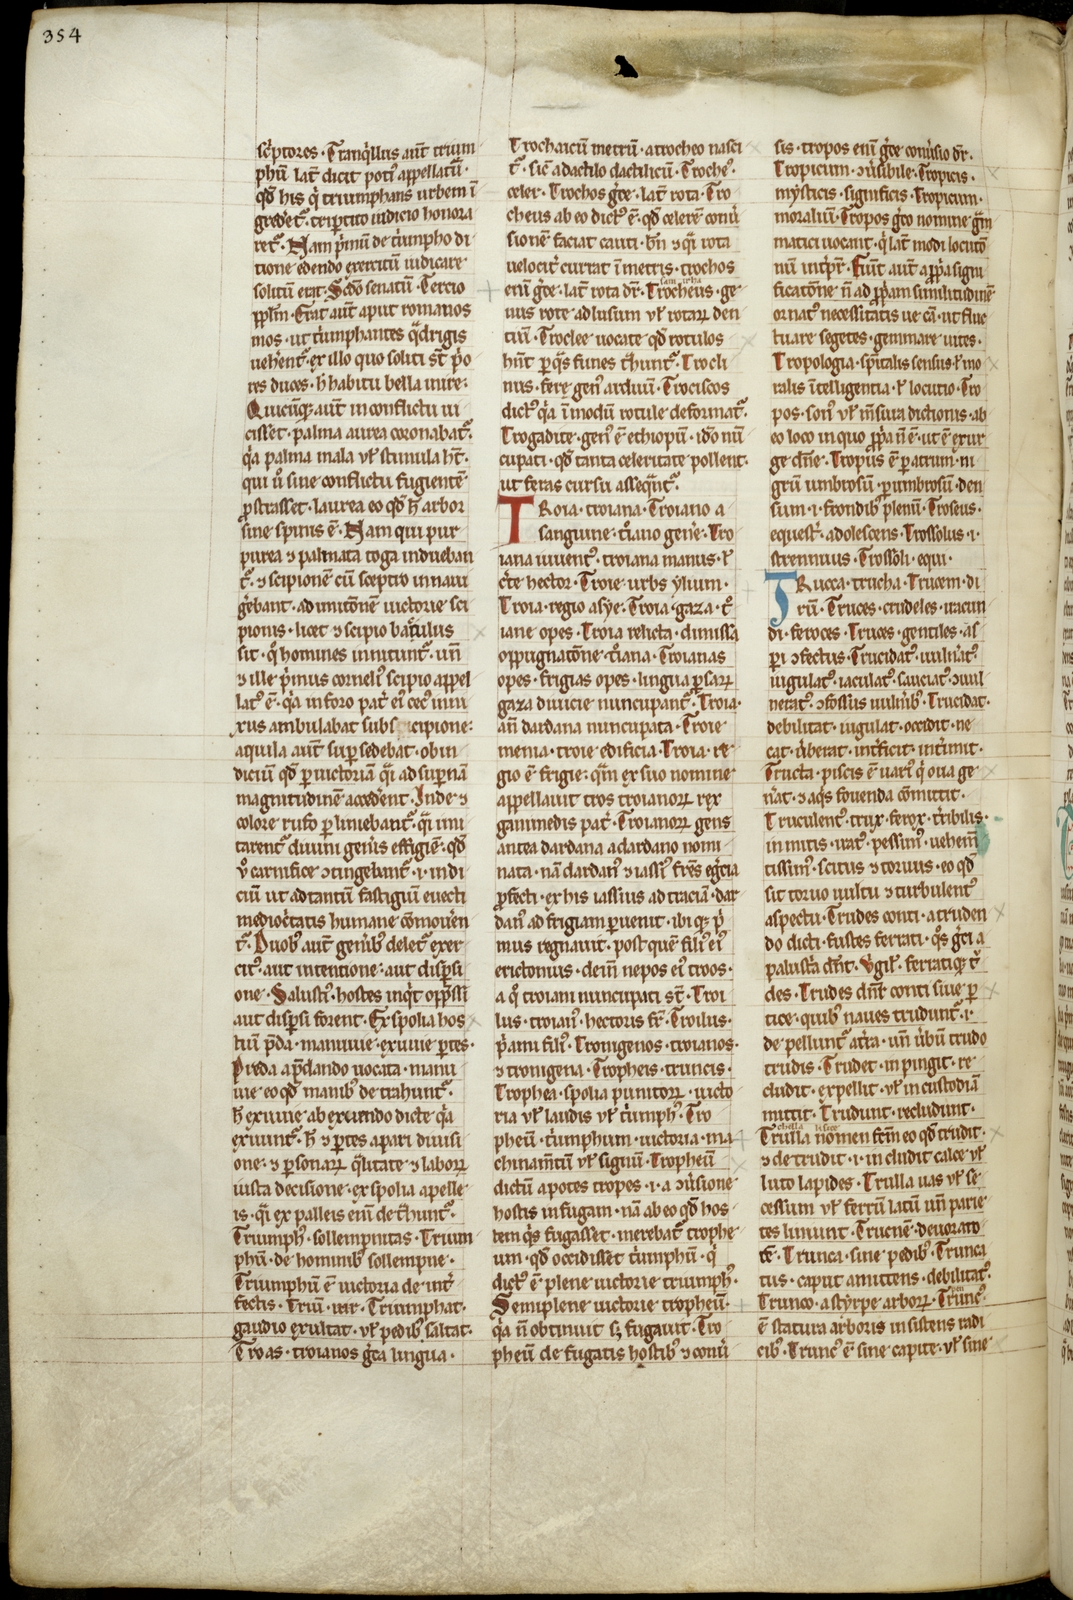 354
sc̃ptores · Tranq̇llus aut̃ trium
phũ lat̃ dicit poti᷒ appellatũ ·
qđ his q̇ triumphans urbem ĩ
gredet᷑ · tripertito iudicio honora
ret᷑ · Nam p̃mũ de t̃umpho di
tione edendo exercitũ iudicare
solitũ erat · Scđo senatũ · Tercio
pp̃lm · Erat aut̃ aput romanos
mos · ut t̃umphantes q̃drigis
uehent᷑ · ex illo quo soliti st̃ p̃o
res duces · h̃ habitu bella inire ·
Quicũq; aut̃ in conflictu ui
cisset · palma aurea coronabat᷑ ·
q̇a palma mala ul̃ stimula h̃t ·
qui u̇ sine conflictu fugientẽ
p̃strasset · laurea eo qđ h̃ arbor
sine spinis ẽ · Nam qui pur
purea ⁊ palmata toga induebãn
t᷑ · ⁊ scipionẽ cũ sceptro in naui
gerebant · ad imitõnẽ uictorie sci
pionis · licet ⁊ scipio baculus
sit · q̊ homines innitunt᷑ · uñ
⁊ ille p̃mus corneli᷒ scipio appel
lat᷒ ẽ · q̇a in foro pat̃ ei᷒ cec᷒ inni
xus ambulabat sub scipione ·
aquila aut̃ sup̃ sedebat · ob in
diciũ qđ p uictoriam q̃si ad sup̃nã
magnitudinẽ accedẽnt · Inde ⁊
colore rufo p liniebant᷑ · q̃i imi
tarent᷑ diuini gen̄is effigiẽ · qđ
u̇ carnifice ɔtingebant᷑ · i · indi
ciũ ut ad tantũ fastigiũ euecti
mediocritatis humane cõmouen
t᷑ · Duob᷒ aut̃ gen̄ib᷒ delet᷑ exer
cit᷒ · aut intentione · aut disp̃si
one · Salusti᷒ · hostes inq̇t opp̃ssi
aut disp̃si forent · Exspolia hos
tiũ p̃da · manuuie · exuuie p̃tes ·
Preda a p̃dando uocata · manu
uie eo qđ manib᷒ de trahunt᷑ ·
h̃ exuuie ab exuendo dicte q̇a
exuunt᷑ · h̃ ⁊ p̃tes a pari diuisi
one · ⁊ p̃sonaꝝ q̃litate ⁊ laboꝝ
iusta decisione · exspolia apelle
is · q̃i ex palleis eni᷒ det̃hunt᷑ ·
Triumph᷒ · sollempnitas · Trium
phũ · de hominib᷒ sollempne ·
Triumphũ ẽ uictoria de int̃
fectis · Triũ · uir · Triumphat ·
gaudio exultat · ul̃ pedib᷒ saltat ·
Troas · troianos g̃ca lingua ·
Trochaicũ metrũ · a trocheo nasci
t᷑ · sic̃ a dactilo dactilicũ · Troche᷒ ·
celer · Trochos g̃ce · lat̃ rota · Tro
cheus ab eo dict᷒ ẽ · qđ celerẽ conu̇
sionẽ faciat canti · bñ ⁊ q̃i rota
uelocit̃ currat ĩ metris · trochos
eni᷒ g̃ce · lat̃ rota dr̃ · Trocheus · ge
nus rote ad lusum ul̃ rotaꝝ den
tiũ · Troclee uocate qđ rotulos
hñt p q̇s funes t̃hunt᷑ · Trocli
nus · fere gen᷒ arduũ · Trociscos
dict᷒ q̇a ĩ modũ rotule deformat᷑ ·
Trogadite · gen᷒ ẽ ethiopũ · ido nũ
cupati · qđ tanta celeritate pollent ·
ut feras cursu asseq̃nt᷑ ·
TRoia · troiana · Troiano a
sanguine · t̃iano gen̄e · Tro
iana iuuent᷒ · troiana manus · ł
c̃te hector · Troie · urbs ylium ·
Troia · regio asye · Troia gaza · t̊
iane opes · Troia relicta · dimissa
oppugnatõne · t̃iana · Troianas
opes · frigias opes · lingua p̃saꝝ
gaza diuicie nuncupant᷑ · Troia ·
añ dardana nuncupata · Troie
menia · troie edificia · Troia · re
gio ẽ frigie · q̃m ex suo nomine
appellauit tros troianoꝝ rex
ganimedis pat̃ · Troianoꝝ gens
antea dardana a dardano nomi
nata · nã dardan᷒ ⁊ iassi᷒ fr̃es eg̃cia
p̃fecti · ex his iassius ad traciã · dar
dan᷒ ad frigiam p uenit · ibi q; p̃
mus regnauit · post quẽ fili᷒ ei᷒
erictonius · dein̄ nepos ei᷒ troos ·
a q̊ troiani nuncupati st̃ · Troi
lus · troian᷒ · hectoris fr̃ · Troilus ·
p̃ami fili᷒ · Troiugenos · troianos ·
⁊ troiugena · Tropheis · truncis ·
Trophea · spolia punitoꝝ · uicto
ria ul̃ laudis ul̃ t̃umph᷒ · Tro
pheũ · t̃umphum · uictoria · ma
chinam̃tũ ul̃ signũ · Tropheũ
dictũ apotes tropes · i · a ɔu̇sione
hostis in fugam · nã ab eo qđ hos
tem q̇s fugasset · merebat᷑ trophe
um · qđ occidisset t̃umphũ · q̇
dict᷒ ẽ plene uictorie triumph᷒ ·
Semiplene uictorie tropheũ ·
q̇a ñ obtinuit sꝫ fugauit · Tro
pheũ de fugatis hostib᷒ ⁊ conu̇
sis · tropos eni᷒ g̃ce conu̇sio dr̃ ·
Tropicum · ɔu̇sibile · Tropicis ·
mysticis · significis · Tropicum ·
moraliũ · Tropos g̃co nomine g̃m
matici uocant · q̇ lat̃ modi locutõ
nũ int̃pt᷑ · Fiunt aut̃ a pp̃a signi
ficatõne ñ ad pp̃am similitudinẽ
ornat᷒ necessitatis ue cã · ut fluc
tuare segetes · gemmare uites ·
Tropologia · sp̃italis sensus · ł mo
ralis ĩtelligentia · ł locutio · Tro
pos · son᷒ ul̃ m̃sura dictionis · ab
eo loco in quo pp̃a ñ ẽ · ut ẽ exur
ge dñe · Tropiis ẽ p atrum · ni
grũ umbrosũ · p umbrosũ · den
sum · i · frondib᷒ plenũ · Troseus ·
equest̃ · adolescens · Trossolus · i ·
strennuus · Trossoli · equi ·
TRucca · trucha · Trucem · di
rũ · Truces · crudeles · iracun
di · feroces · Truces · gentiles · as
p̃i ɔfectus · Trucidat᷒ · uuln̄at᷒
iugulat᷒ · iaculat᷒ · sauciat᷒ · ɔuul
nerat᷒ · ɔfossus uuln̄ib᷒ · Trucidat ·
debilitat · iugulat · occidit · ne
cat · u̇berat · int̃ficit · int̃imit ·
Tructa · piscis ẽ uari᷒ q̇ oua ge
n̄at · ⁊ aq̇s fouenda cõmittit ·
Truculent᷒ · trux · ferox · t̃ribilis ·
in mitis · irat᷒ · pessim᷒ · uehem̃
tissim᷒ · scitus ⁊ toruus · eo qđ
sit toruo uultu ⁊ turbulent᷒
aspectu · Trudes conti · a truden
do dicti · fustes ferrati · q̊s g̃ci a
palustra dñt · Ṽgil᷒ · ferratiq; t̃
des · Trudes dñr conti siue p
tice · quib᷒ naues trudunt᷑ · i ·
de pellunt᷑ at̃ra · uñ ũbũ trudo
trudis · Trudet · in pingit · re
cludit · expellit · ul̃ in custodiã
mittit · Trudunt · recludunt ·
Trulla nomen fc̃m eo qđ trudit ·
⁊ de trudit · i · in cludit calce ul̃
luto lapides · Trulla uas ul̃ se
cessum ul̃ ferrũ latũ uñ parie
tes linunt · Trucnẽ · deuorato
rẽ · Trunca · sine pedib᷒ · Trunca
tus · caput amittens · debilitat᷒ ·
Trunco · a styrpe arboꝝ · Trunc᷒ ·
ẽ statura arboris insistens radi
cib᷒ · Trunc᷒ ẽ sine capite · ul̃ sine